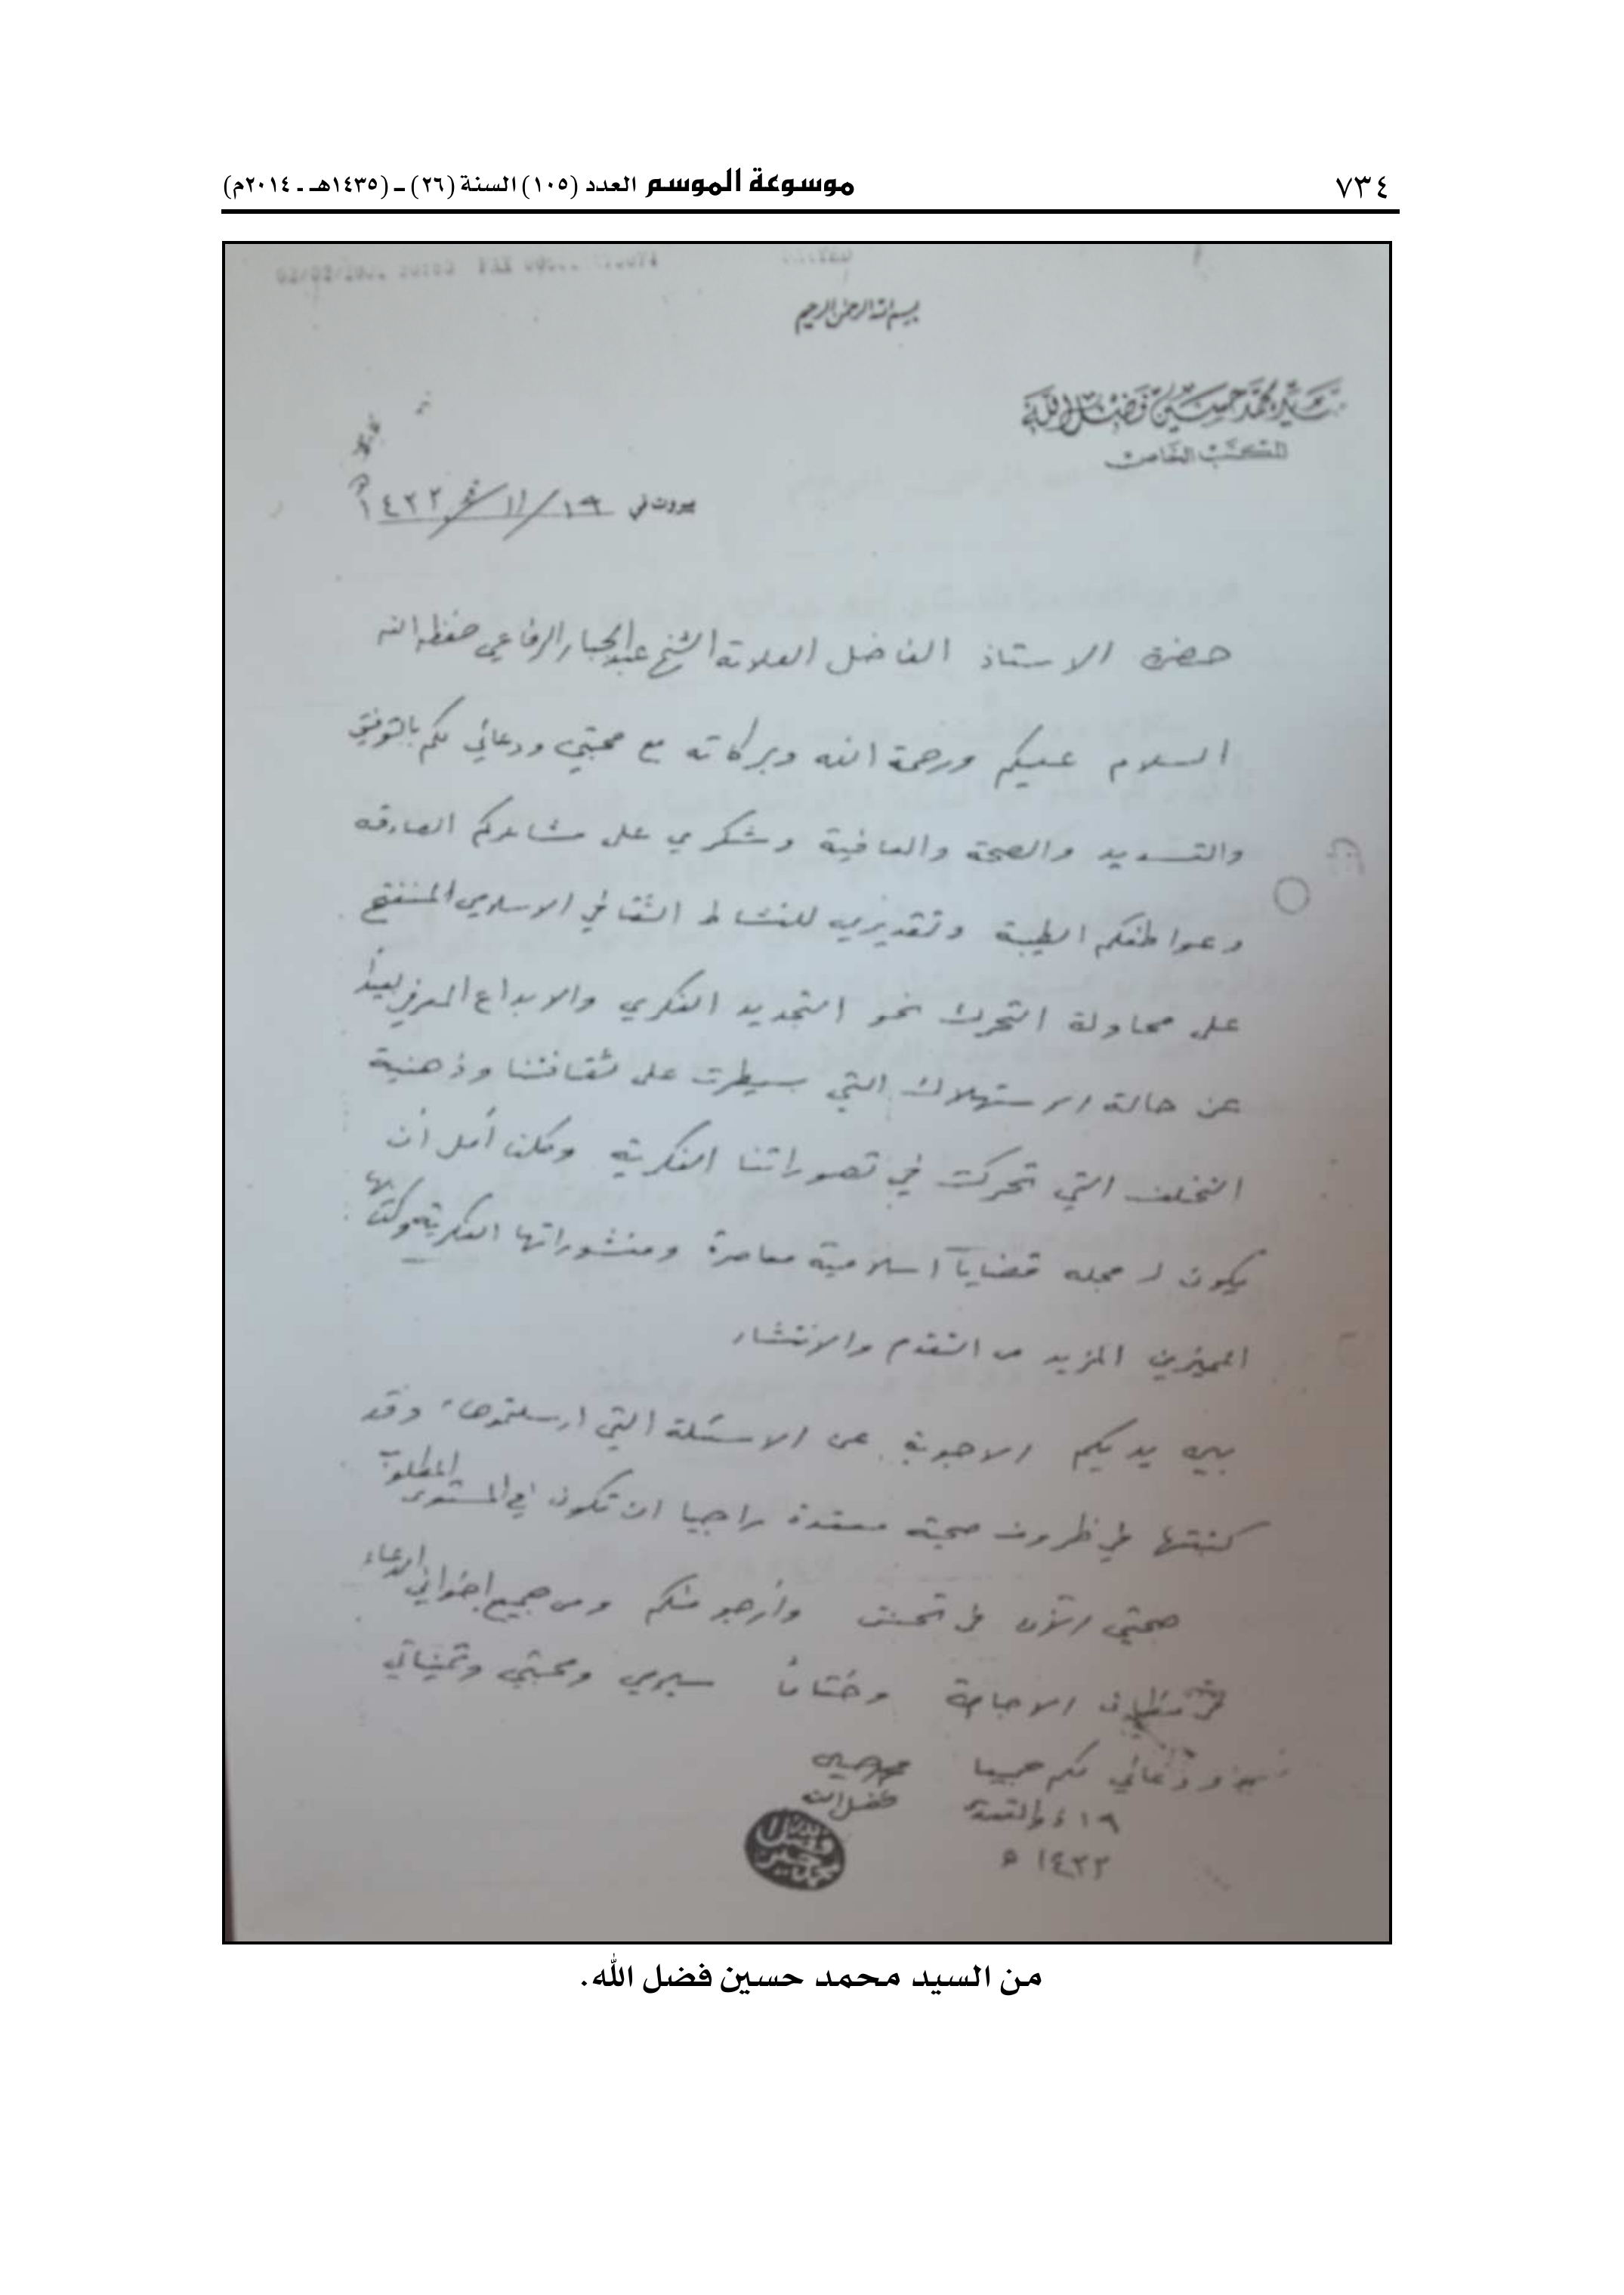 ٧٣٤
موسوعة الموسم العدد (١٠٥) السنة (٢٦) ـ (١٤٣٥هـ ـ ٢٠١٤م)
بسم الله الرحمن الرحيم
السيد محمد حسين فضل الله
المكتب الخاص
بيروت في ١٩/١١/١٤٢٢
حضرة الاستاذ الفاضل العلامة الشيخ عبد الجبار الرفاعي حفظه الله
السلام عليكم ورحمة الله وبركاته مع محبتي ودعائي لكم بالتوفيق
والتسديد والصحة والعافية وشكري على مشاعركم الصادقة
وعواطفكم الطيبة وتقديري للنشاط الثقافي الاسلامي المنفتح
على محاولة التحرك نحو التجديد الفكري والابداع المعرفي بعيداً
عن حالة الاستهلاك التي سيطرت على ثقافتنا وذهنية
التخلف التي تحركت في تصوراتنا الفكرية ولكن أمل أن
يكون لـ مجلة قضايا اسلامية معاصرة ومنشوراتها الفكرية وكتابها
المميزين المزيد من التقدم والانتشار
بين يديكم الاجوبة عن الاسئلة التي ارسلتموها وقد
كتبتها في ظروف صحية معقدة راجيا ان تكون في المستوى المطلوب
صحتي الآن في تحسن وأرجو منكم ومن جميع اخواني الدعاء
في مظان الاجابة وختاماً سلامي ومحبتي وتمنياتي
ودعائي لكم جميعا محمد حسين
١٩ ذو القعدة فضل الله
١٤٢٢ هـ
من السيد محمد حسين فضل الله.